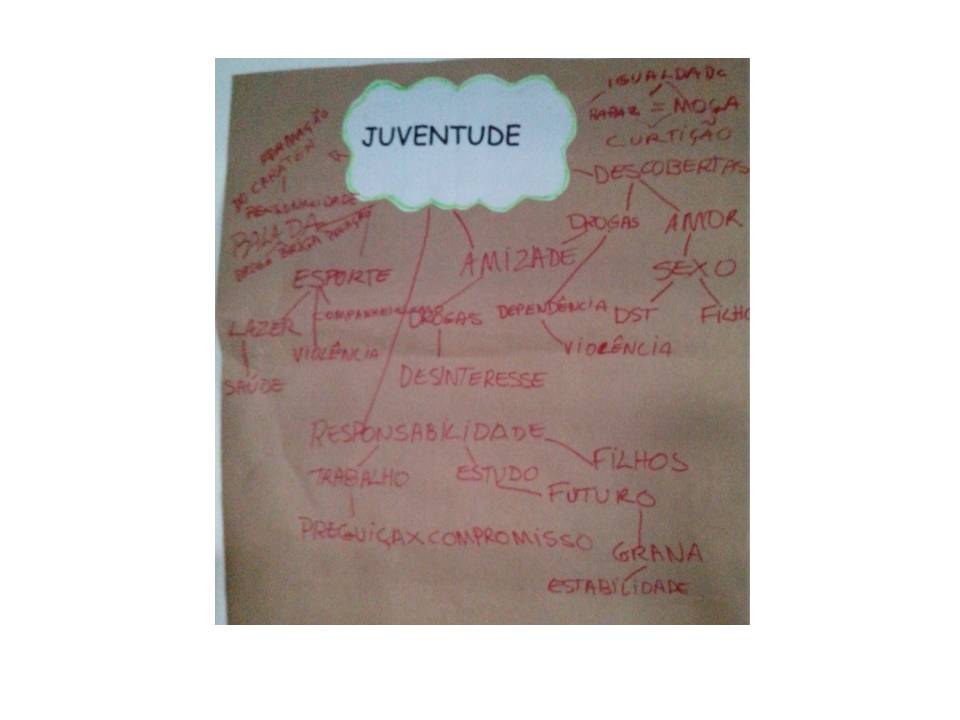 JUVENTUDE
IGUALDADE
RAPAZ = MOÇA
CURTIÇÃO
DESCOBERTAS
DROGAS
AMOR
SEXO
DST
FILHO
DEPENDÊNCIA
VIOLÊNCIA
AMIZADE
COMPANHEIRISMO
DROGAS
DESINTERESSE
FORMAÇÃO
DO CARATER
PERSONALIDADE
BALADA
DROGA BRIGA
ESPORTE
LAZER
SAÚDE
VIOLÊNCIA
RESPONSABILIDADE
TRABALHO
PREGUIÇA X COMPROMISSO
ESTUDO
FILHOS
FUTURO
GRANA
ESTABILIDADE